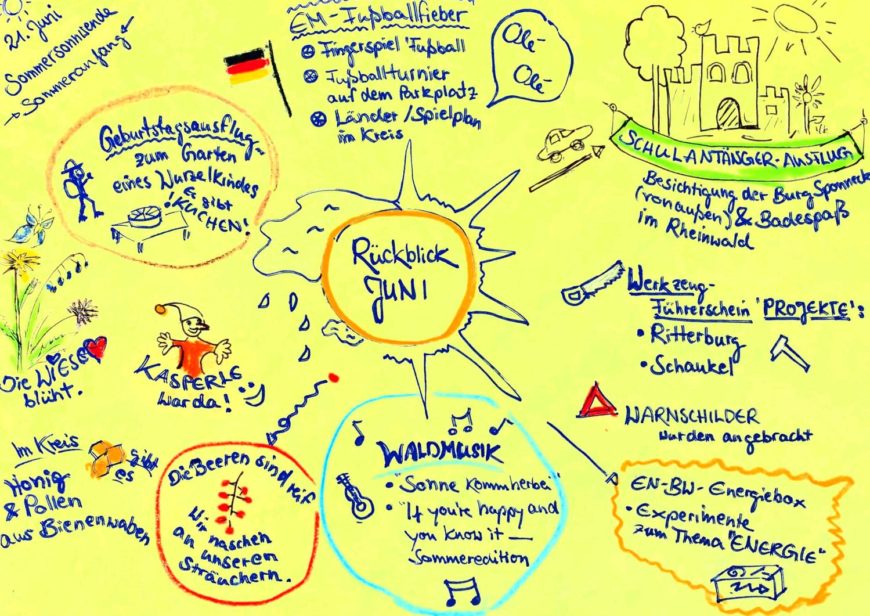 21. Juni
Sommersonnwende
→ Sommeranfang
EM-Fußballfieber
Fingerspiel 'Fußball'
Fußballturnier
auf dem Parkplatz
Länder/Spielplan
im Kreis
Olé
Olé
SCHULANFÄNGER-AUSFLUG
Besichtigung der Burg Sponneck
(von außen) & Badespaß
im Rheinwald
Geburtstagsausflug
zum Garten
eines Wurzelkindes
& gibt
KUCHEN!
Rückblick
JUNI
Werkzeug-
Führerschein 'PROJEKTE':
• Ritterburg
• Schaukel
Die WIESE
blüht.
KASPERLE
war da!
WARNSCHILDER
wurden angebracht
Im Kreis
gibt
es
Honig
& Pollen
aus Bienenwaben
Die Beeren sind reif
Wir naschen
an unseren
Sträuchern.
WALDMUSIK
• "Sonne komm herbei"
• "If you're happy and
you know it —
Sommeredition
EN-BW-Energiebox
• Experimente
zum Thema "ENERGIE"